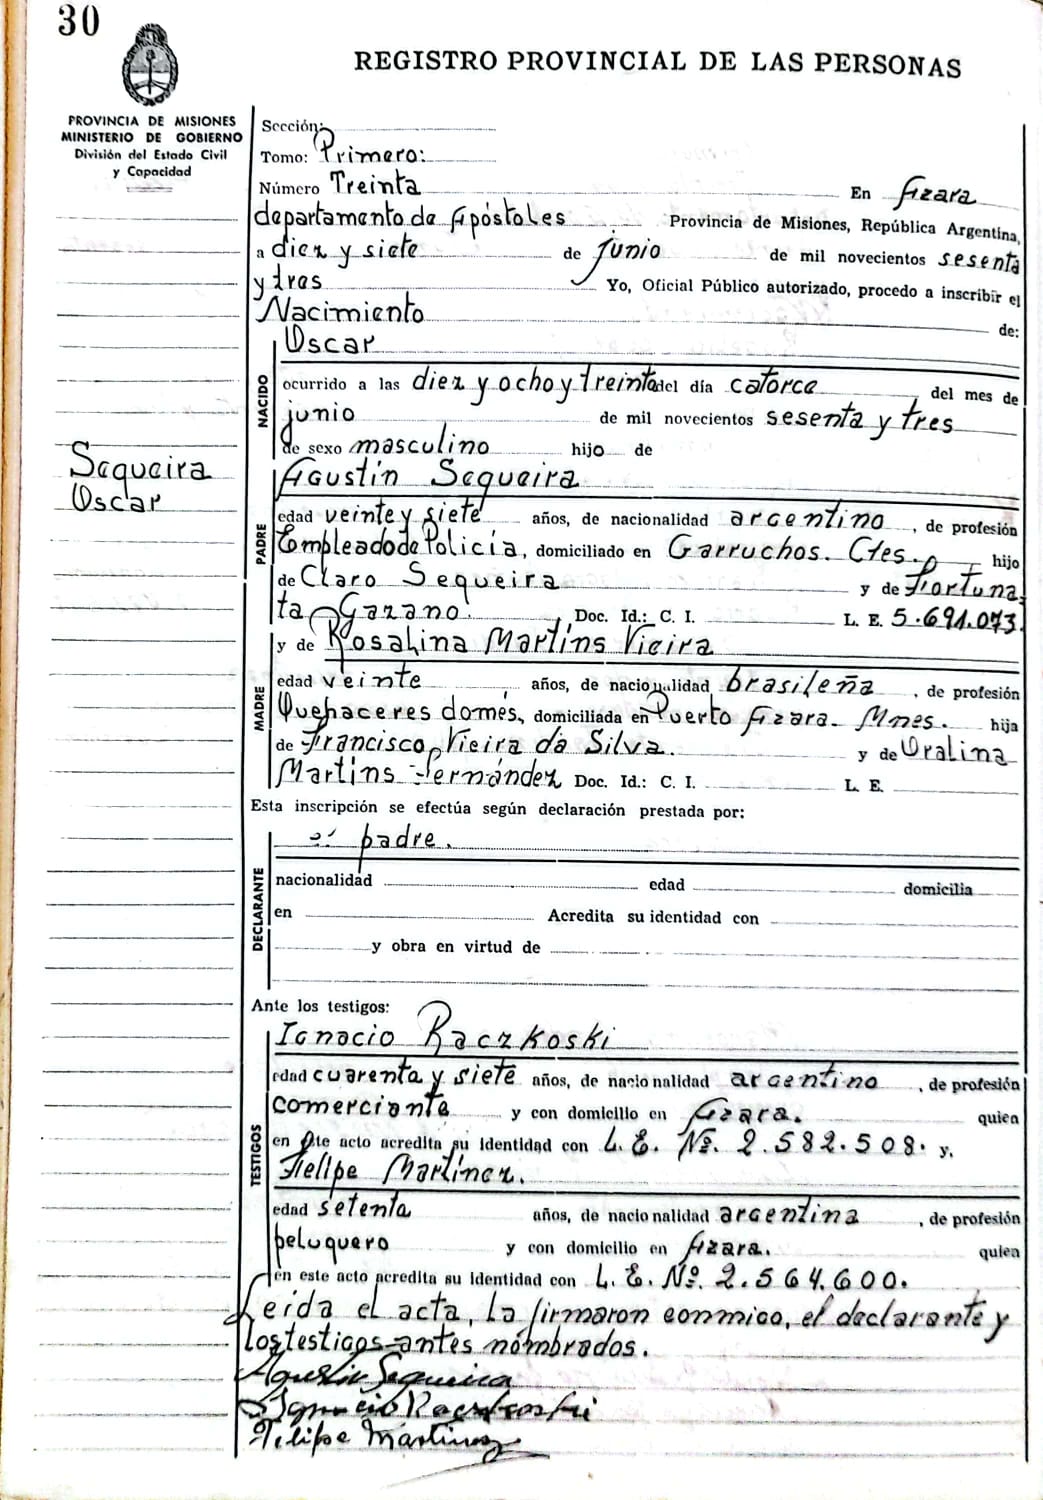 30
REGISTRO PROVINCIAL DE LAS PERSONAS
PROVINCIA DE MISIONES
MINISTERIO DE GOBIERNO
División del Estado Civil
y Capacidad
Sección:
Tomo: Primero:
Número Treinta En Azara
departamento de Apóstoles Provincia de Misiones, República Argentina,
a diez y siete de junio de mil novecientos sesenta
y tres Yo, Oficial Público autorizado, procedo a inscribir el
Nacimiento de:
Oscar
NACIDO
ocurrido a las diez y ocho y treinta del día catorce del mes de
junio de mil novecientos sesenta y tres
de sexo masculino hijo de
Sequeira
Oscar
Agustín Sequeira
PADRE
edad veinte y siete años, de nacionalidad argentino, de profesión
Empleado de Policía, domiciliado en Garruchos. Ctes. hijo
de Claro Sequeira y de Fortuna
ta Gazano. Doc. Id.: C. I. L. E. 5.691.073.
y de Rosalina Martins Vieira
MADRE
edad veinte años, de nacionalidad brasileña, de profesión
Quehaceres domés, domiciliada en Puerto Azara. Mnes. hija
de Francisco Vieira da Silva. y de Oralina
Martins Fernández Doc. Id.: C. I. L. E.
Esta inscripción se efectúa según declaración prestada por:
el padre.
DECLARANTE
nacionalidad edad domicilia
en Acredita su identidad con
y obra en virtud de
Ante los testigos:
Ignacio Raczkoski
TESTIGOS
edad cuarenta y siete años, de nacionalidad argentino, de profesión
comerciante y con domicilio en Azara. quien
en este acto acredita su identidad con L. E. Nº. 2.582.508. y,
Felipe Martínez.
edad setenta años, de nacionalidad argentina, de profesión
peluquero y con domicilio en Azara. quien
en este acto acredita su identidad con L. E. Nº. 2.564.600.
Leída el acta, la firmaron conmigo, el declarante y
los testigos antes nombrados.
Agustín Sequeira
Ignacio Raczkoski
Felipe Martinez